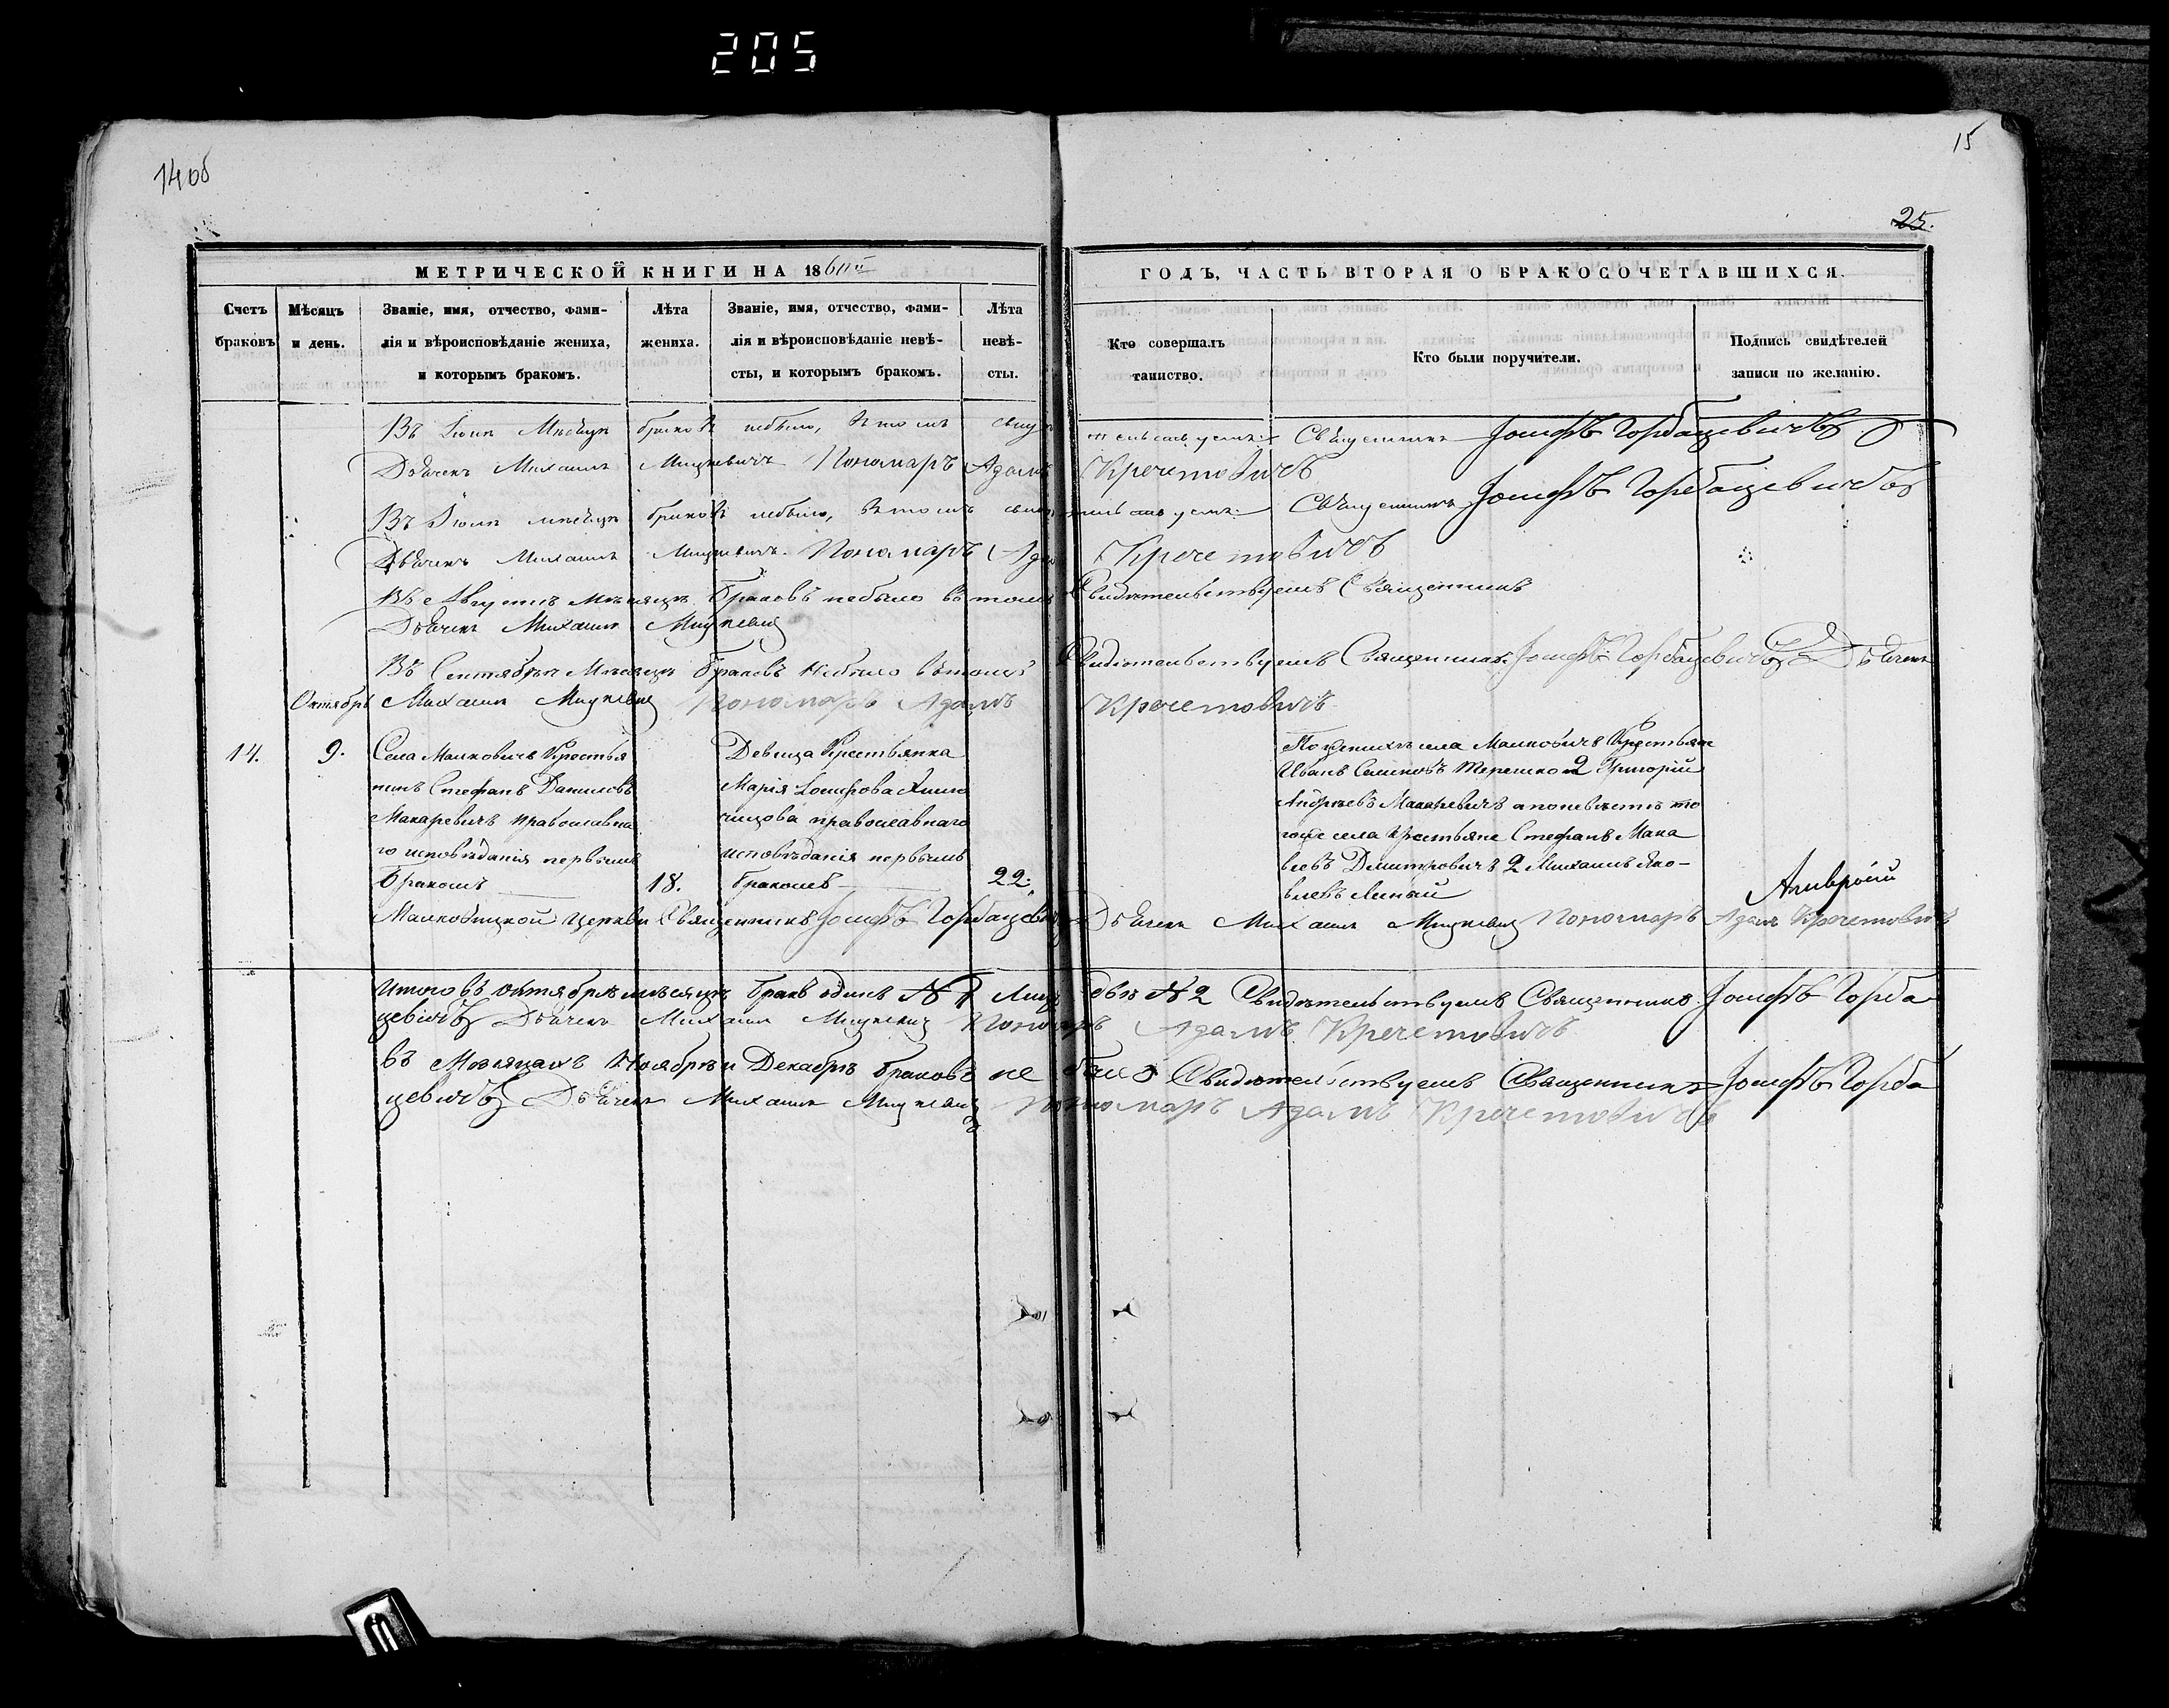 205
14 об
15
25.
МЕТРИЧЕСКОЙ КНИГИ НА 1860й
ГОДЪ, ЧАСТЬ ВТОРАЯ О БРАКОСОЧЕТАВШИХСЯ.
Счетъ браковъ
Мѣсяцъ и день.
Званіе, имя, отчество, фами-
лія и вѣроисповѣданіе жениха,
и которымъ бракомъ.
Лѣта
жениха.
Званіе, имя, отчество, фами-
лія и вѣроисповѣданіе невѣ-
сты, и которымъ бракомъ.
Лѣта
невѣ-
сты.
Кто совершалъ
таинство.
Кто были поручители.
Подпись свидѣтелей
записи по желанію.
Въ Іюнѣ Мѣсяцѣ браковъ небыло, въ томъ свидѣтельствуемъ: Священникъ Іосифъ Горбацевичъ
Дьячекъ Михаилъ Мицкевичъ Пономарь Адамъ Кречетовичъ
Въ Іюлѣ мѣсяцѣ браковъ небыло, въ томъ свидѣтельствуемъ: Священникъ Іосифъ Горбацевичъ
Дьячекъ Михаилъ Мицкевичъ. Пономарь Адамъ Кречетовичъ
Въ Августѣ Мѣсяцѣ Браковъ небыло въ томъ Свидѣтельствуемъ Священникъ
Дьячекъ Михаилъ Мицкевич
Въ Сентябрѣ Мѣсяцѣ Браковъ Небыло въ томъ Свидѣтельствуемъ Священникъ Іосифъ Горбацевичъ Дьячекъ
Михаилъ Мицкевич Пономарь Адамъ Кречетовичъ
Октябрь
14.
9.
Села Малковичъ Крестья
нинъ Стефанъ Даниловъ
Макаревичъ православна
го исповѣданія первымъ
Бракомъ
18.
Девица Крестьянка
Марія Іосифова
православнаго
исповѣданія первымъ
бракомъ
22.
По женихѣ села Малковичъ Крестьяне
Иванъ Семеновъ Терешко 2 Григорій
Андреевъ Макаревичъ а по невѣстѣ то
гоже села Крестьяне Стефанъ
Димитровичъ 2 Михаилъ Яко-
влевъ
Малковицкой Церкви Священникъ Іосифъ Горбацевичъ Дьячекъ Михаилъ Мицкевич Пономарь Адамъ Кречетовичъ
Итого въ октябрѣ мѣсяцѣ бракъ одинъ № 1 Лицъ двѣ № 2 Свидѣтельствуемъ Священникъ Іосифъ Горба
цевичъ Дьячекъ Михаилъ Мицкевич Пономарь Адамъ Кречетовичъ
въ Месяцахъ Ноябрѣ и Декабрѣ браковъ не было Свидѣтельствуемъ Священникъ Іосифъ Горба
цевичъ Дьячекъ Михаилъ Мицкевич Пономарь Адамъ Кречетовичъ